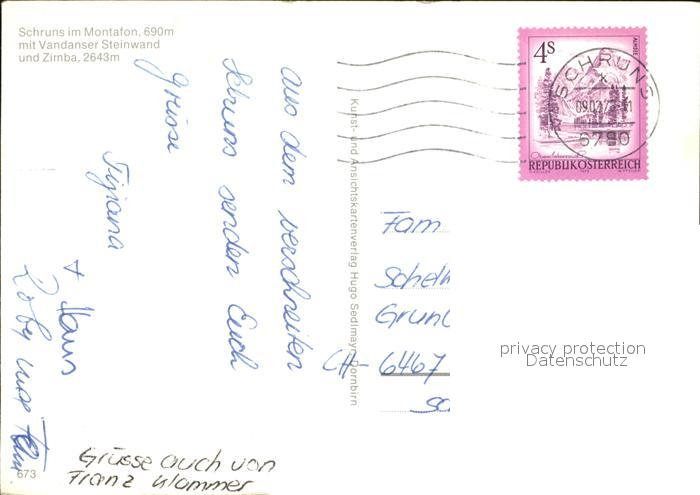 Schruns im Montafon, 690m
mit Vandanser Steinwand
und Zimba, 2643m
aus dem verschneiten
Schruns senden Euch
Grüsse
Tijana
+ Hans
Roby und Fam
Grüsse auch von
Franz Klammer
673
Kunst- und Ansichtskartenverlag Hugo Sedlmayer, Dornbirn
4S
ALMSEE
REPUBLIK ÖSTERREICH
SCHRUNS
6780
Fam
Schelb
Grund
CH- 6467
Sc
privacy protection
Datenschutz